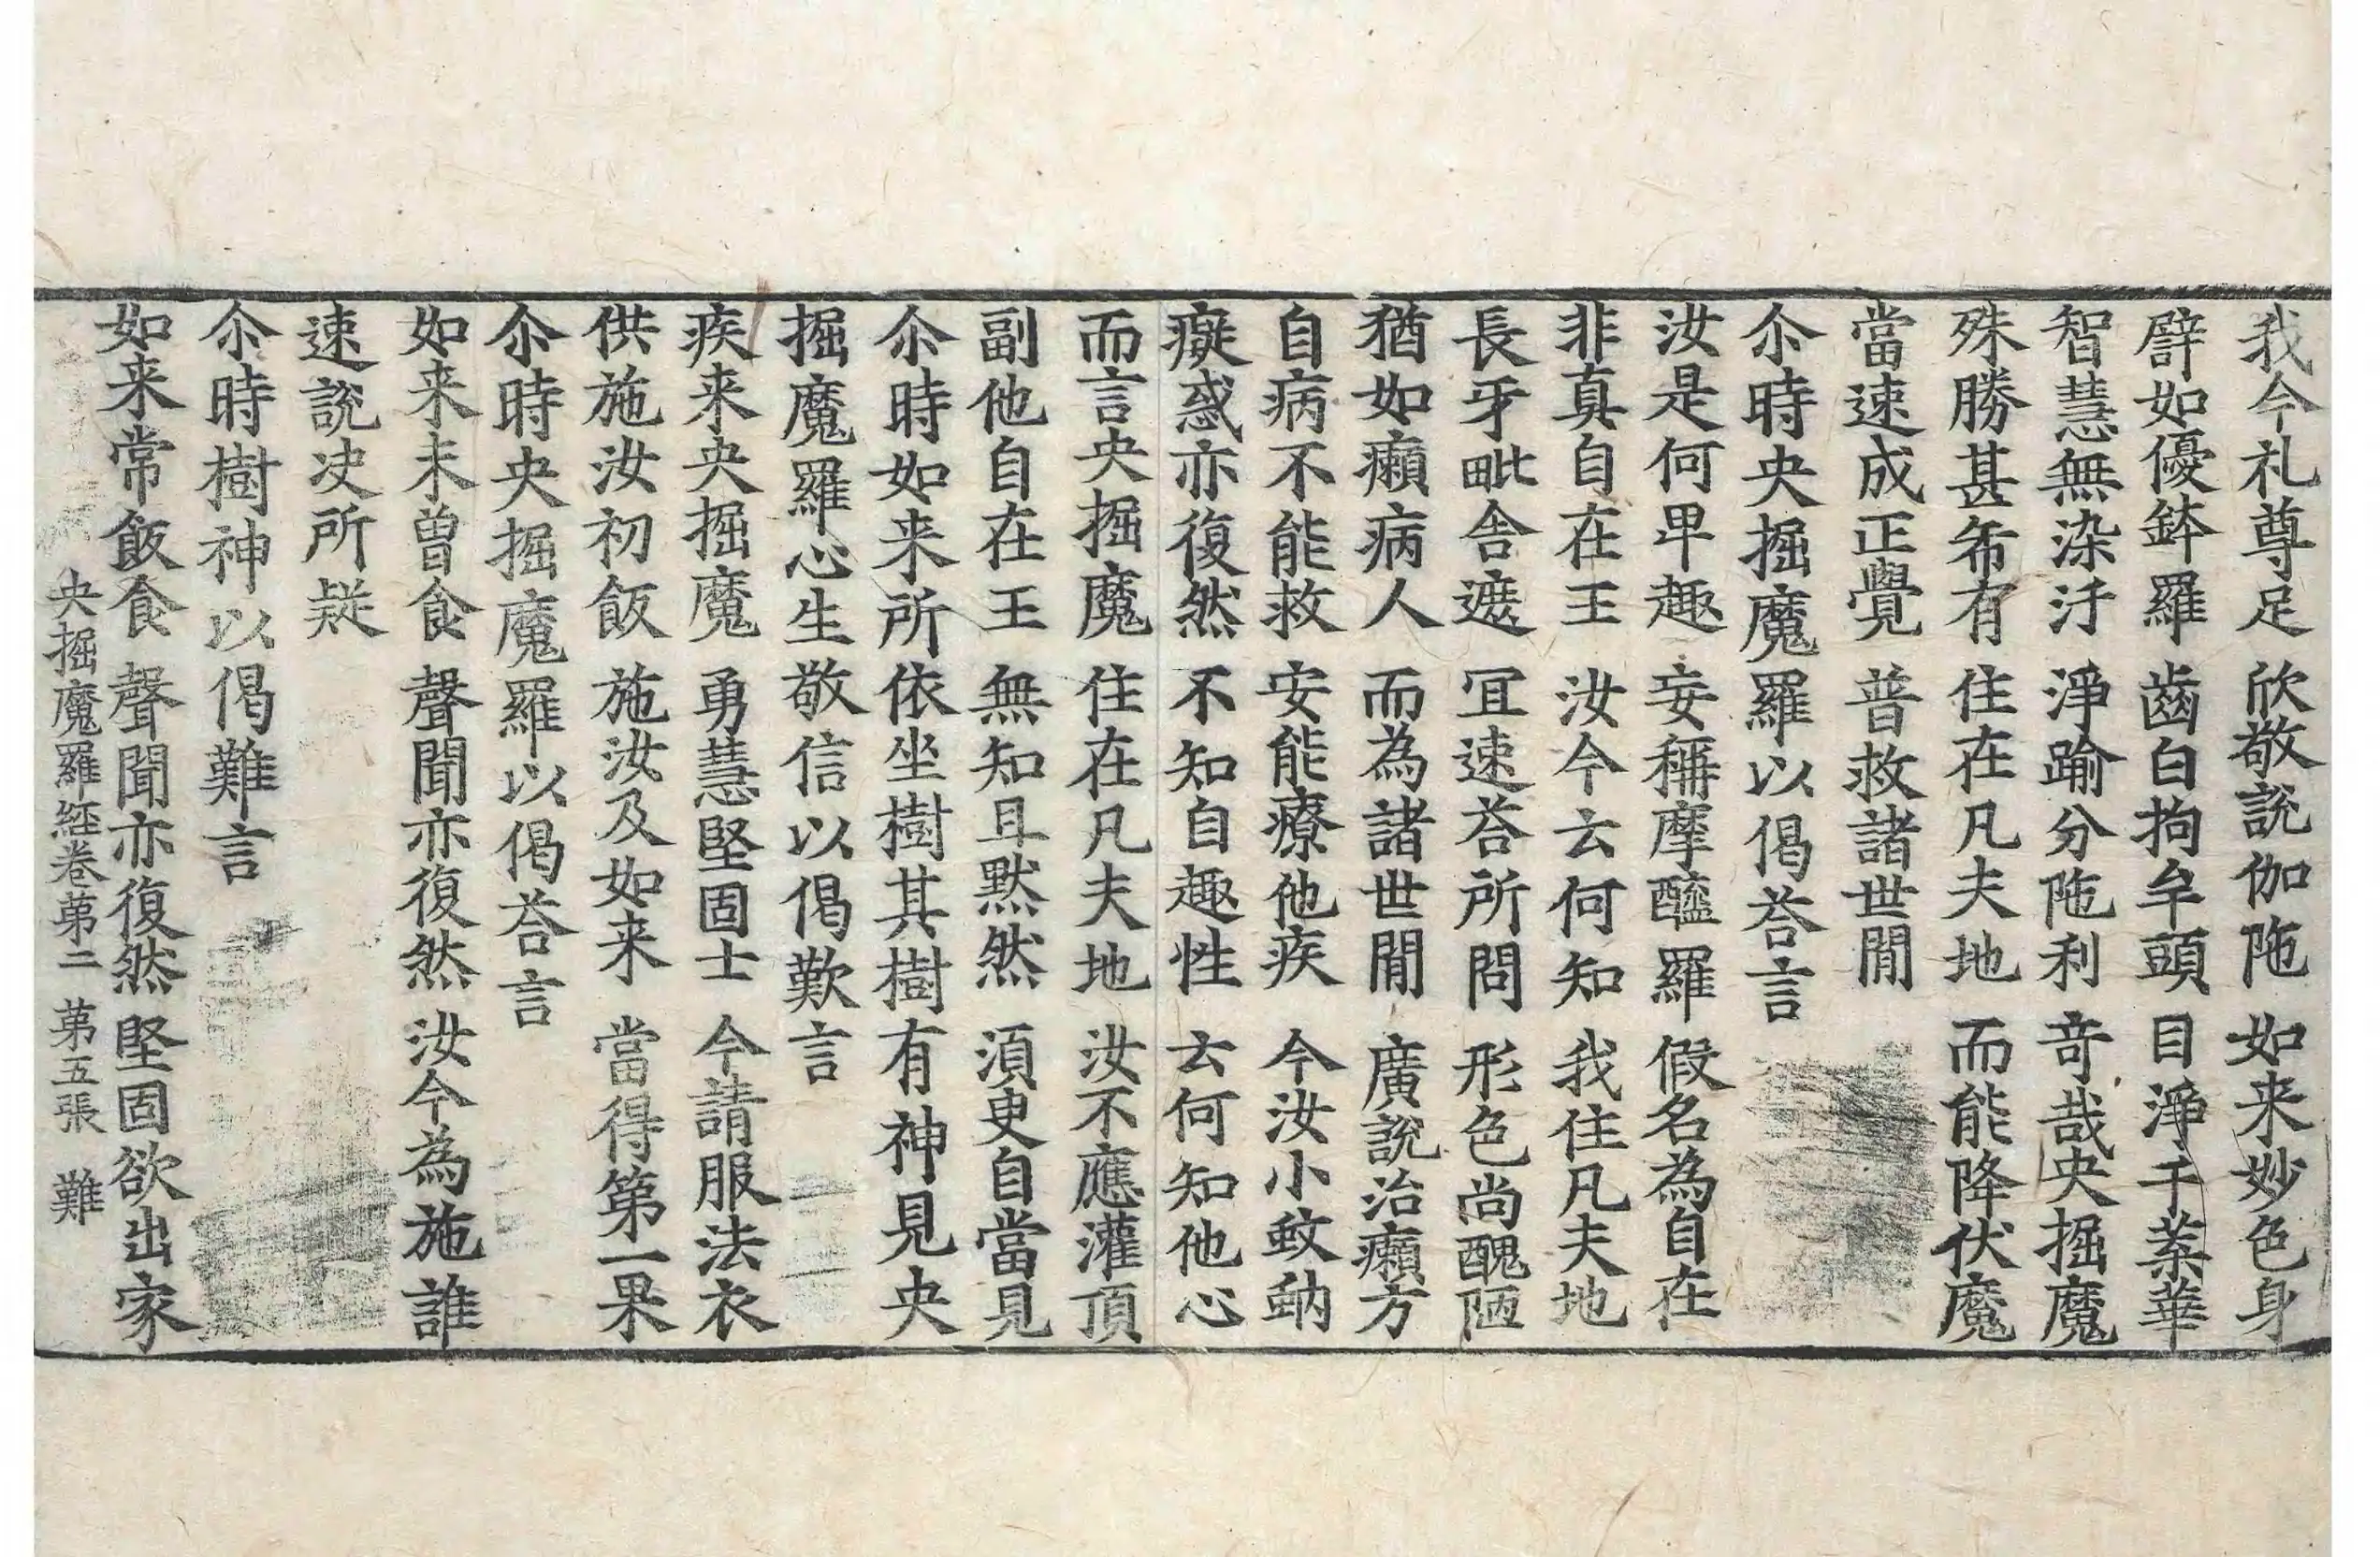 我今礼尊足 欣敬說伽陁 如来妙色身
譬如優鉢羅 齒白拘牟頭 目淨千葉華
智慧無染汙 淨踰分陁利 奇哉央掘魔
殊勝甚希有 住在凡夫地 而能降伏魔
當速成正覺 普救諸世間
尒時央掘魔羅以偈荅言
汝是何卑趣 妄稱摩醯羅 假名為自在
非真自在王 汝今云何知 我住凡夫地
長牙毗舍遮 冝速荅所問 形色尚醜陋
猶如癩病人 而為諸世間 廣說治癩方
自病不能救 安能療他疾 今汝小蚊蚋
癡惑亦復然 不知自趣性 云何知他心
而言央掘魔 住在凡夫地 汝不應灌頂
副他自在王 無知且默然 湏臾自當見
尒時如来所依坐樹其樹有神見央
掘魔羅心生敬信以偈歎言
疾来央掘魔 勇慧堅固士 今請服法衣
供施汝初飯 施汝及如来 當得第一果
尒時央掘魔羅以偈荅言
如来未曾食 聲聞亦復然 汝今為施誰
速說决所疑
尒時樹神以偈難言
如来常飯食 聲聞亦復然 堅固欲出家
央掘魔羅經卷苐二 苐五張 難